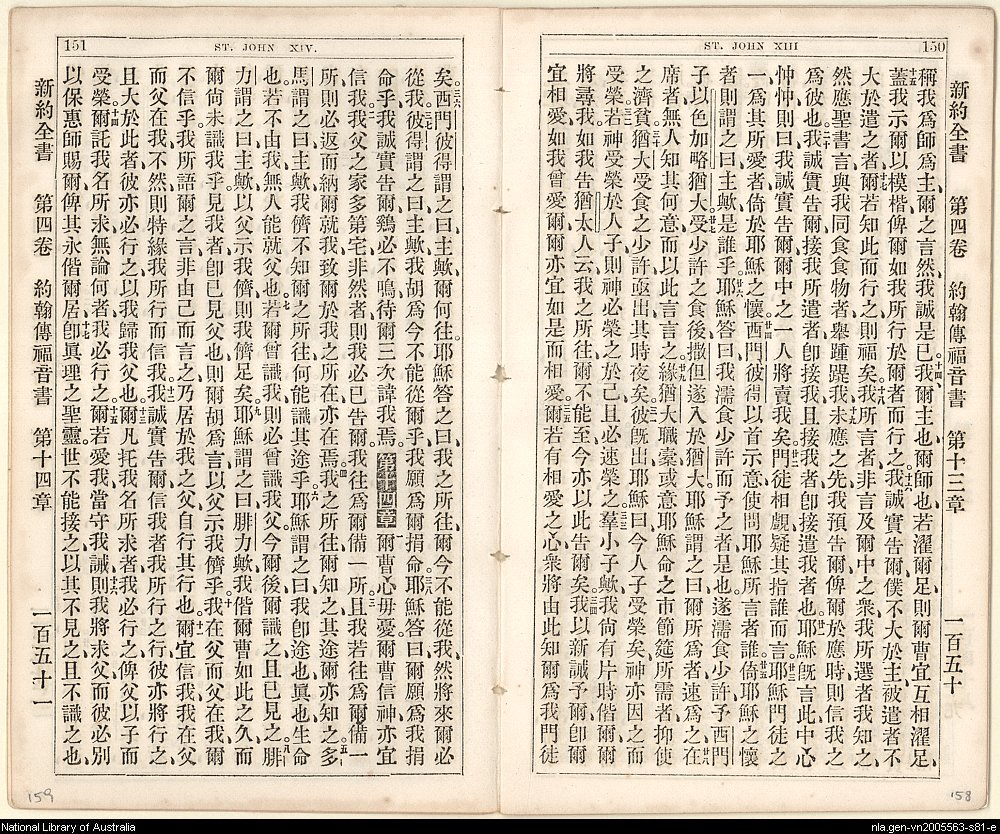 150
ST. JOHN XIII
新約全書 第四卷 約翰傳福音書 第十三章 一百五十
稱我爲師爲主、爾之言然、我誠是已、我爾主也、爾師也、若濯爾足、則爾曹宜互相濯足、
蓋我示爾以模楷、俾爾如我所行於爾者而行之、我誠實告爾、僕不大於主、被遣者不
大於遣之者、爾若知此而行之、則福矣、我所言者、非言及爾中之衆、我所選者、我知之、
然應聖書言、與我同食食物者、舉踵踶我、未應之先、我預告爾、俾爾於應時、則信我之
爲彼也、我誠實告爾、接我所遣者、卽接我、且接我者、卽接遣我者也、耶穌旣言此、中心
忡忡、則曰、我誠實告爾、爾中之一人將賣我矣、門徒相覷、疑其指誰而言、耶穌門徒之
一、爲其所愛者、倚於耶穌之懷、西門彼得以首示意、使問耶穌所言者誰、倚耶穌之懷
者則謂之曰、主歟、是誰乎、耶穌答曰、我濡食少許而予之者是也、遂濡食少許、予西門
子以色加略猶大、受少許之食後、撒但遂入於猶大、耶穌謂之曰、爾所爲者速爲之、在
席者、無人知其何意而以此言言之、緣猶大職槖、或意耶穌命之市節筵所需者、抑使
之濟貧、猶大受食之少許、亟出、其時夜矣、彼旣出、耶穌曰、今人子受榮矣、神亦因之而
受榮、若神受榮於人子、則神必榮之於己、且必速榮之、羣小子歟、我尙有片時偕爾、爾
將尋我、如我告猶太人云、我之所往、爾不能至、今亦以此告爾矣、我以新誡予爾、卽爾
宜相愛、如我曾愛爾、爾亦宜如是而相愛、爾若有相愛之心、衆將由此知爾爲我門徒
158
151
ST. JOHN XIV.
矣、西門彼得謂之曰、主歟、爾何往、耶穌答之曰、我之所往、爾今不能從我、然將來爾必
從我、彼得謂之曰、主歟、我胡爲今不能從爾乎、我願爲爾捐命、耶穌答曰、爾願爲我捐
命乎、我誠實告爾、鷄必不鳴、待爾三次諱我焉、第十四章 爾曹心毋憂、爾曹信神、亦宜
信我、我父之家多第宅、非然者、則我必已告爾、我往爲爾備一所、且我若往爲爾備一
所、則必返而納爾就我、致爾於我之所在亦在焉、我之所往、爾知之、其途爾亦知之、多
馬謂之曰、主歟、我儕不知爾之所往、何能識其途乎、耶穌謂之曰、我卽途也、眞也、生命
也、若不由我、無人能就父也、若爾曾識我、則必曾識我父、今爾後爾識之、且已見之、腓
力謂之曰、主歟、以父示我儕、則我儕足矣、耶穌謂之曰、腓力歟、我偕爾曹如此之久、而
爾尙未識我乎、見我者、卽已見父也、則爾胡爲言以父示我儕乎、我在父、而父在我、爾
不信乎、我所語爾之言、非由己而言之、乃居於我之父、自行其行也、爾宜信我在父、
而父在我、不然、則特緣我所行而信我、我誠實告爾、信我者、我所行之行、彼亦將行之、
且大於此者、彼亦必行之、以我歸我父也、爾凡托我名所求者、我必行之、俾父以子而
受榮、爾託我名所求、無論何者、我必行之、爾若愛我、當守我誡、則我將求父、而彼必別
以保惠師賜爾、俾其永偕爾居、卽眞理之聖靈、世不能接之、以其不見之、且不識之也、
新約全書 第四卷 約翰傳福音書 第十四章 一百五十一
159
National Library of Australia
nla.gen-vn2005563-s81-e